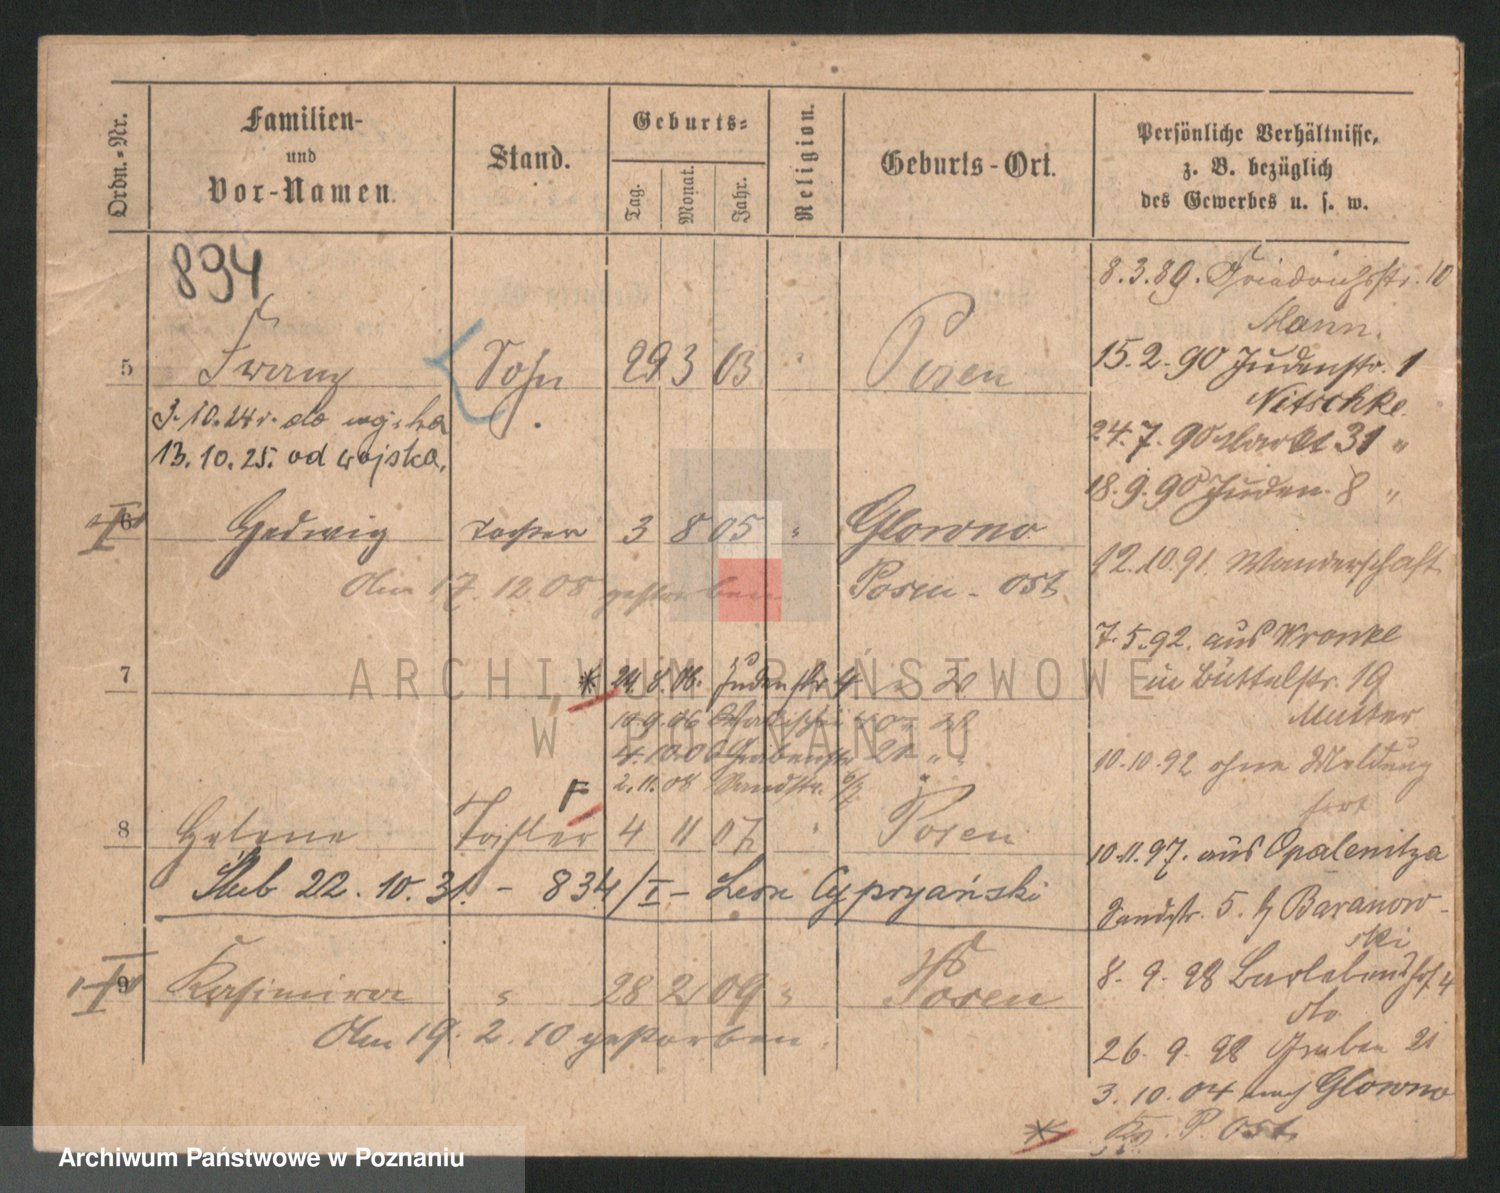 Ordn.-Nr.
Familien-
und
Vor-Namen.
Stand.
Geburts-
Tag.
Monat.
Jahr.
Religion.
Geburts-Ort.
Persönliche Verhältnisse,
z. B. bezüglich
des Gewerbes u. s. w.
894
5 Franz Sohn 29 3 03 " Posen
3.10.24 r. do wojska
13.10.25. od wojska.
6 Hedwig Tochter 3 8 05 " Glowno
Am 17.12.08 gestorben Posen-Ost
7
* 24.8.08. Judenstr. 4
4.10.06 Grabenstr. 21 " "
2.11.08 Sandstr.
F
8 Helene Tochter 4 11 07 " Posen
Ślub 22.10.31. - 834/I - Leon Cypryański
9 Kasimira " 28 2 09 " Posen
Am 19.2.10 gestorben.
8.3.89. Friedrichstr. 10
Mann.
15.2.90 Judenstr. 1
Nitschke.
24.7.90 Markt 31 "
18.9.90 Juden. 8 "
12.10.91. Wanderschaft
7.5.92. aus Wronke
in Büttelstr. 19
Mutter
10.10.92 ohne Meldung
fort
10.11.97. aus Opalenitza
Sandstr. 5. b. Baranow-
ski
8.9.98
dto
26.9.98 Graben 21
3.10.04 nach Glowno
P. Ost.
*
ARCHIWUM PAŃSTWOWE
W POZNANIU
Archiwum Państwowe w Poznaniu